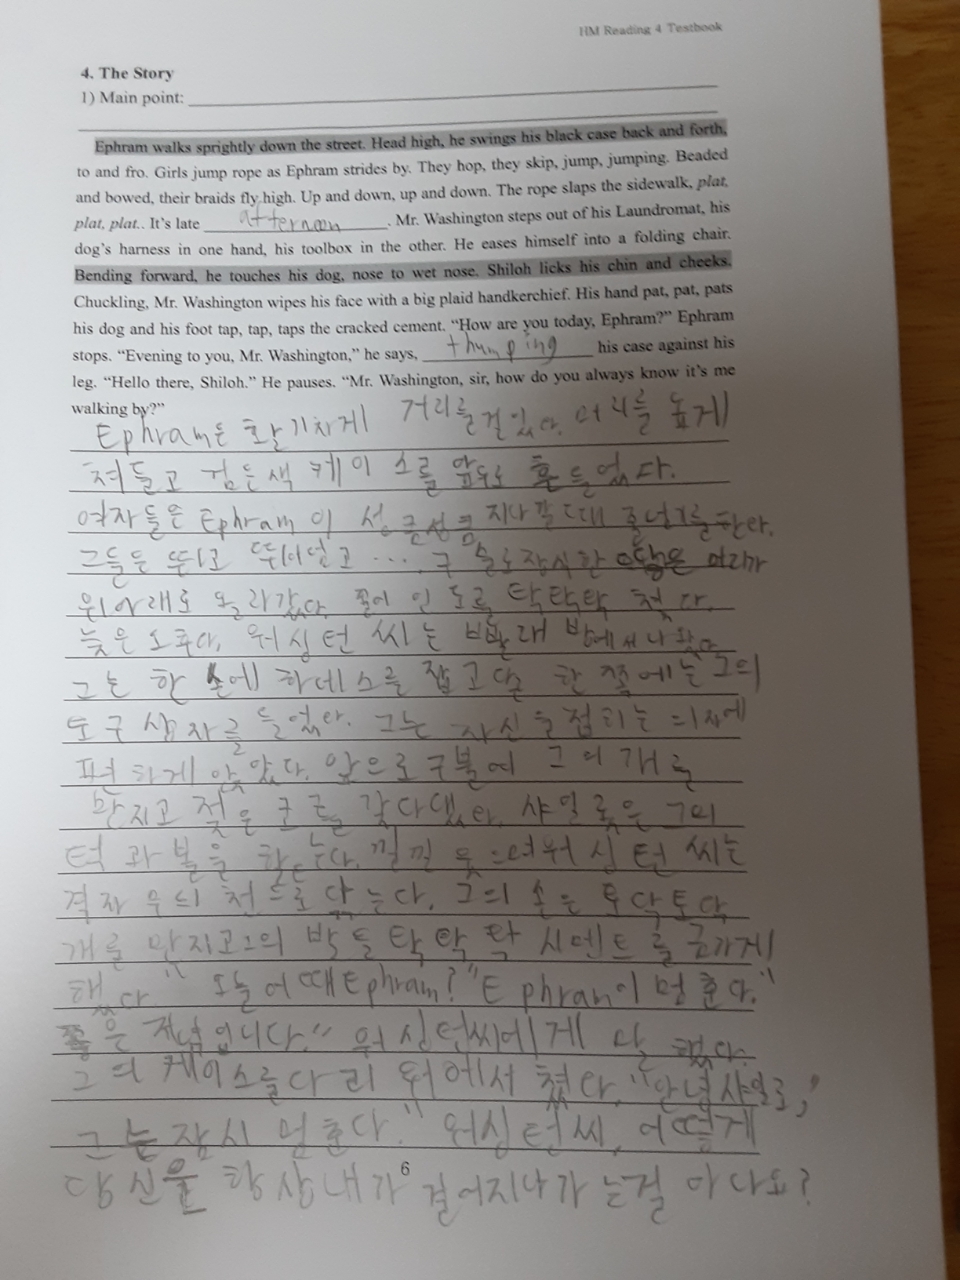 HM Reading 4 Testbook
4. The Story
1) Main point:
Ephram walks sprightly down the street. Head high, he swings his black case back and forth,
to and fro. Girls jump rope as Ephram strides by. They hop, they skip, jump, jumping. Beaded
and bowed, their braids fly high. Up and down, up and down. The rope slaps the sidewalk, plat,
plat, plat.. It's late afternoon. Mr. Washington steps out of his Laundromat, his
dog's harness in one hand, his toolbox in the other. He eases himself into a folding chair.
Bending forward, he touches his dog, nose to wet nose. Shiloh licks his chin and cheeks.
Chuckling, Mr. Washington wipes his face with a big plaid handkerchief. His hand pat, pat, pats
his dog and his foot tap, tap, taps the cracked cement. "How are you today, Ephram?" Ephram
stops. "Evening to you, Mr. Washington," he says, thumping his case against his
leg. "Hello there, Shiloh." He pauses. "Mr. Washington, sir, how do you always know it's me
walking by?"
Ephram은 활기차게 거리를 걸었다. 머리를 높게
쳐들고 검은색 케이스를 앞뒤로 흔들었다.
여자들은 Ephram이 성큼성큼 지나갈 때 줄넘기를 한다.
그들은 뛰고 뛰어넘고 ... 구슬로 장식한 머리가
위아래로 올라갔다. 줄이 인도를 탁탁탁 쳤다.
늦은 오후다, 워싱턴 씨는 빨래방에서 나왔다
그는 한 손에 하네스를 잡고 한 쪽에는 그의
도구상자를 들었다. 그는 자신을 접히는 의자에
편하게 앉았다. 앞으로 구불여 그의 개를
만지고 젖은 코를 갖다댔다. 샤일롯은 그의
턱과 볼을 핥는다. 낄낄 웃으며 워싱턴 씨는
격자무늬 천으로 닦는다. 그의 손은 토닥토닥
개를 만지고 그의 발을 탁탁탁 시멘트를 금가게
했다. "오늘 어때 Ephram?" Ephram이 멈춘다."
좋은 저녁입니다." 워싱턴씨에게 말했다.
그의 케이스를 다리 위에서 쳤다. "안녕 샤일로,"
그는 잠시 멈춘다." 워싱턴씨, 어떻게
당신은 항상 내가 걸어지나가는걸 아나요?
6